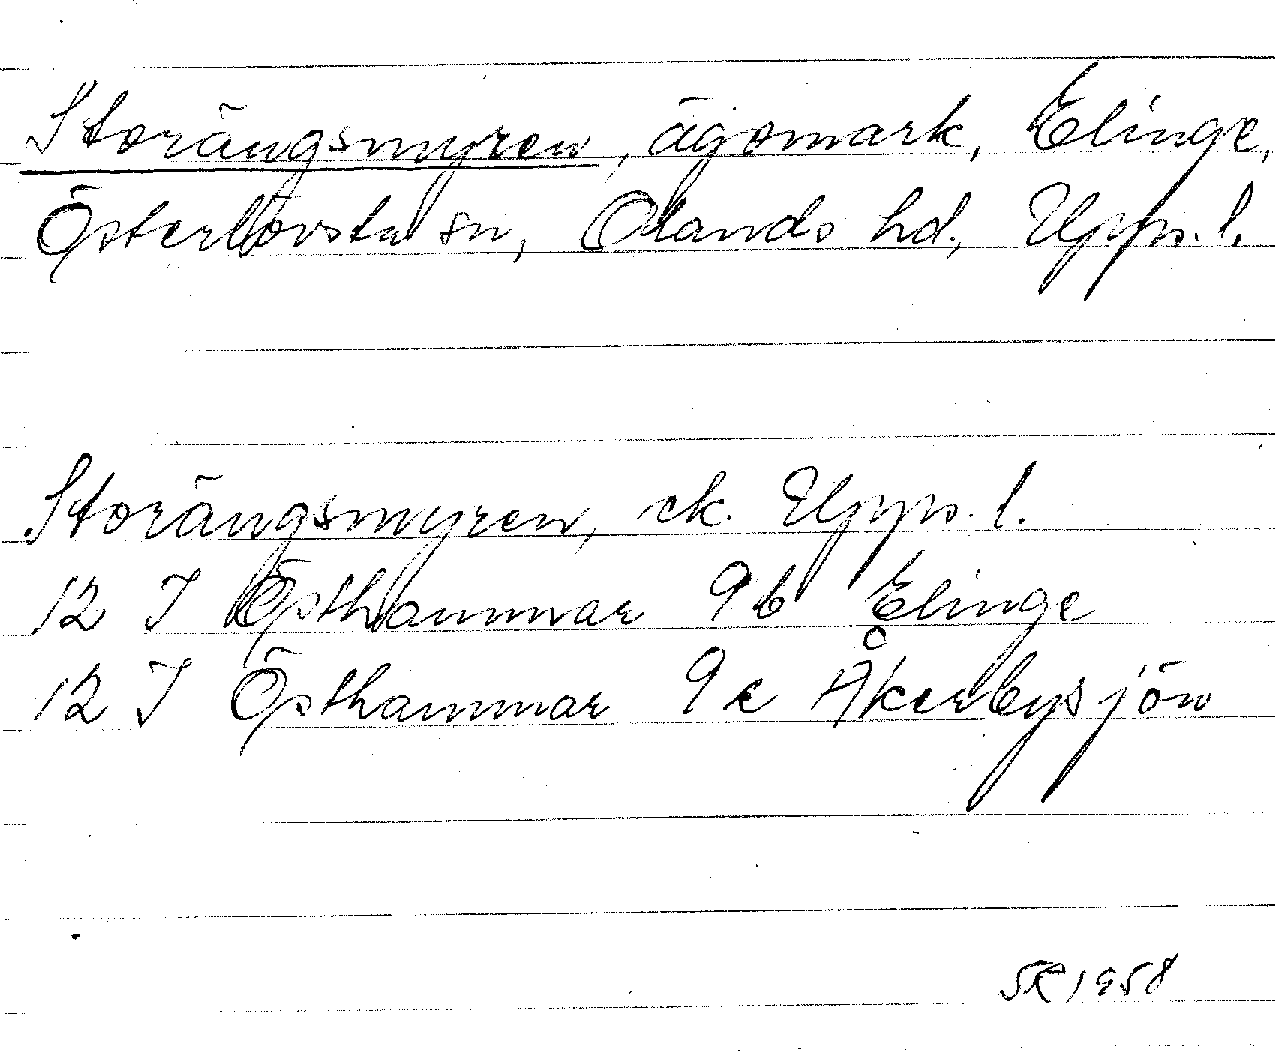 Storängsmyren, ägomark, Elinge,
Österlövsta sn, Olands hd., Upps. l.
Storängsmyren, ek. Upps. l.
12 I Östhammar 9b Elinge
12 I Östhammar 9c Åkerbysjön
SR 1958